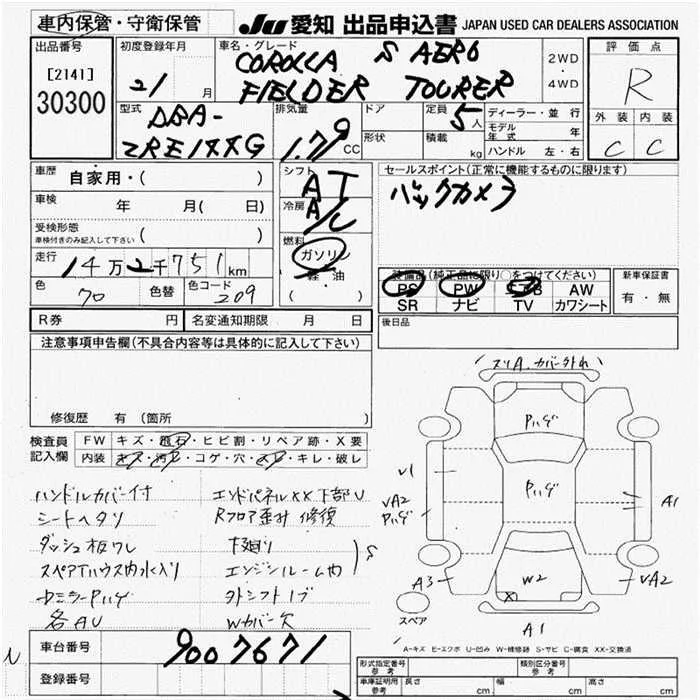 車内保管・守衛保管
JU 愛知 出品申込書 JAPAN USED CAR DEALERS ASSOCIATION
出品番号
[2141]
30300
初度登録年月
21 月
車名・グレード
COROLLA S AERO
FIELDER TOURER
2WD
・
4WD
評価点
R
外装 内装
C C
型式
DBA-
ZRE1××G
排気量
1.79 CC
ドア
形状
定員
5人
積載
kg
ディーラー・並行
モデル年式 年
ハンドル 左・右
車歴 自家用・( )
車検 年 月( 日)
受検形態
車検付きのみ記入して下さい ( )
走行 14万2千751km
色 70 色替 色コード 209
シフト
AT
冷房
A/C
燃料
ガソリン
軽油
( )
セールスポイント(正常に機能するものに限ります)
バックカメラ
装備品(純正品に限り○をつけてください)
PS PW エアB AW
SR ナビ TV カワシート
新車保証書
有・無
R券 円 名変通知期限 月 日
後日品
注意事項申告欄(不具合内容等は具体的に記入して下さい)
修復歴 有(箇所 )
検査員
記入欄
FW キズ・飛石・ヒビ割・リペア跡・X要
内装 キズ・汚レ・コゲ・穴・スレ・キレ・破レ
ハンドルカバー付
シートヘタリ
ダッシュ板ワレ
スペアTハウス内水入り
各AU
エンドパネル××下部U
Rフロア歪み 修復
下廻り
エンジンルーム内
S
Wカバー欠
スリA.カバー外れ
Pハゲ
Pハゲ
U1
UA2
Pハゲ
A1
A3
W2
X
UA2
A1
スペア
A-キズ E-エクボ U-凹み W-補修跡 S-サビ C-腐食 XX-交換済
車台番号 9007671
登録番号
形式指定番号
参考
類別区分番号
参考
車庫証明用
参考
長さ cm 幅 cm 高さ cm